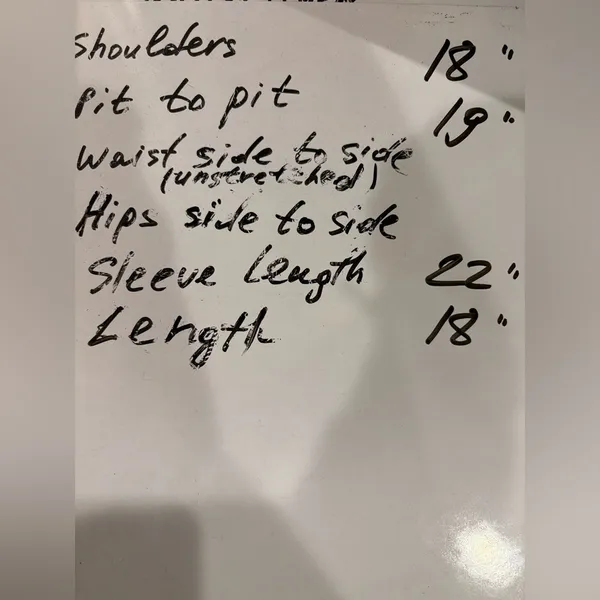 shoulders 18"
Pit to pit 19"
Waist side to side
(unstretched)
Hips side to side
Sleeve Length 22"
Length 18"